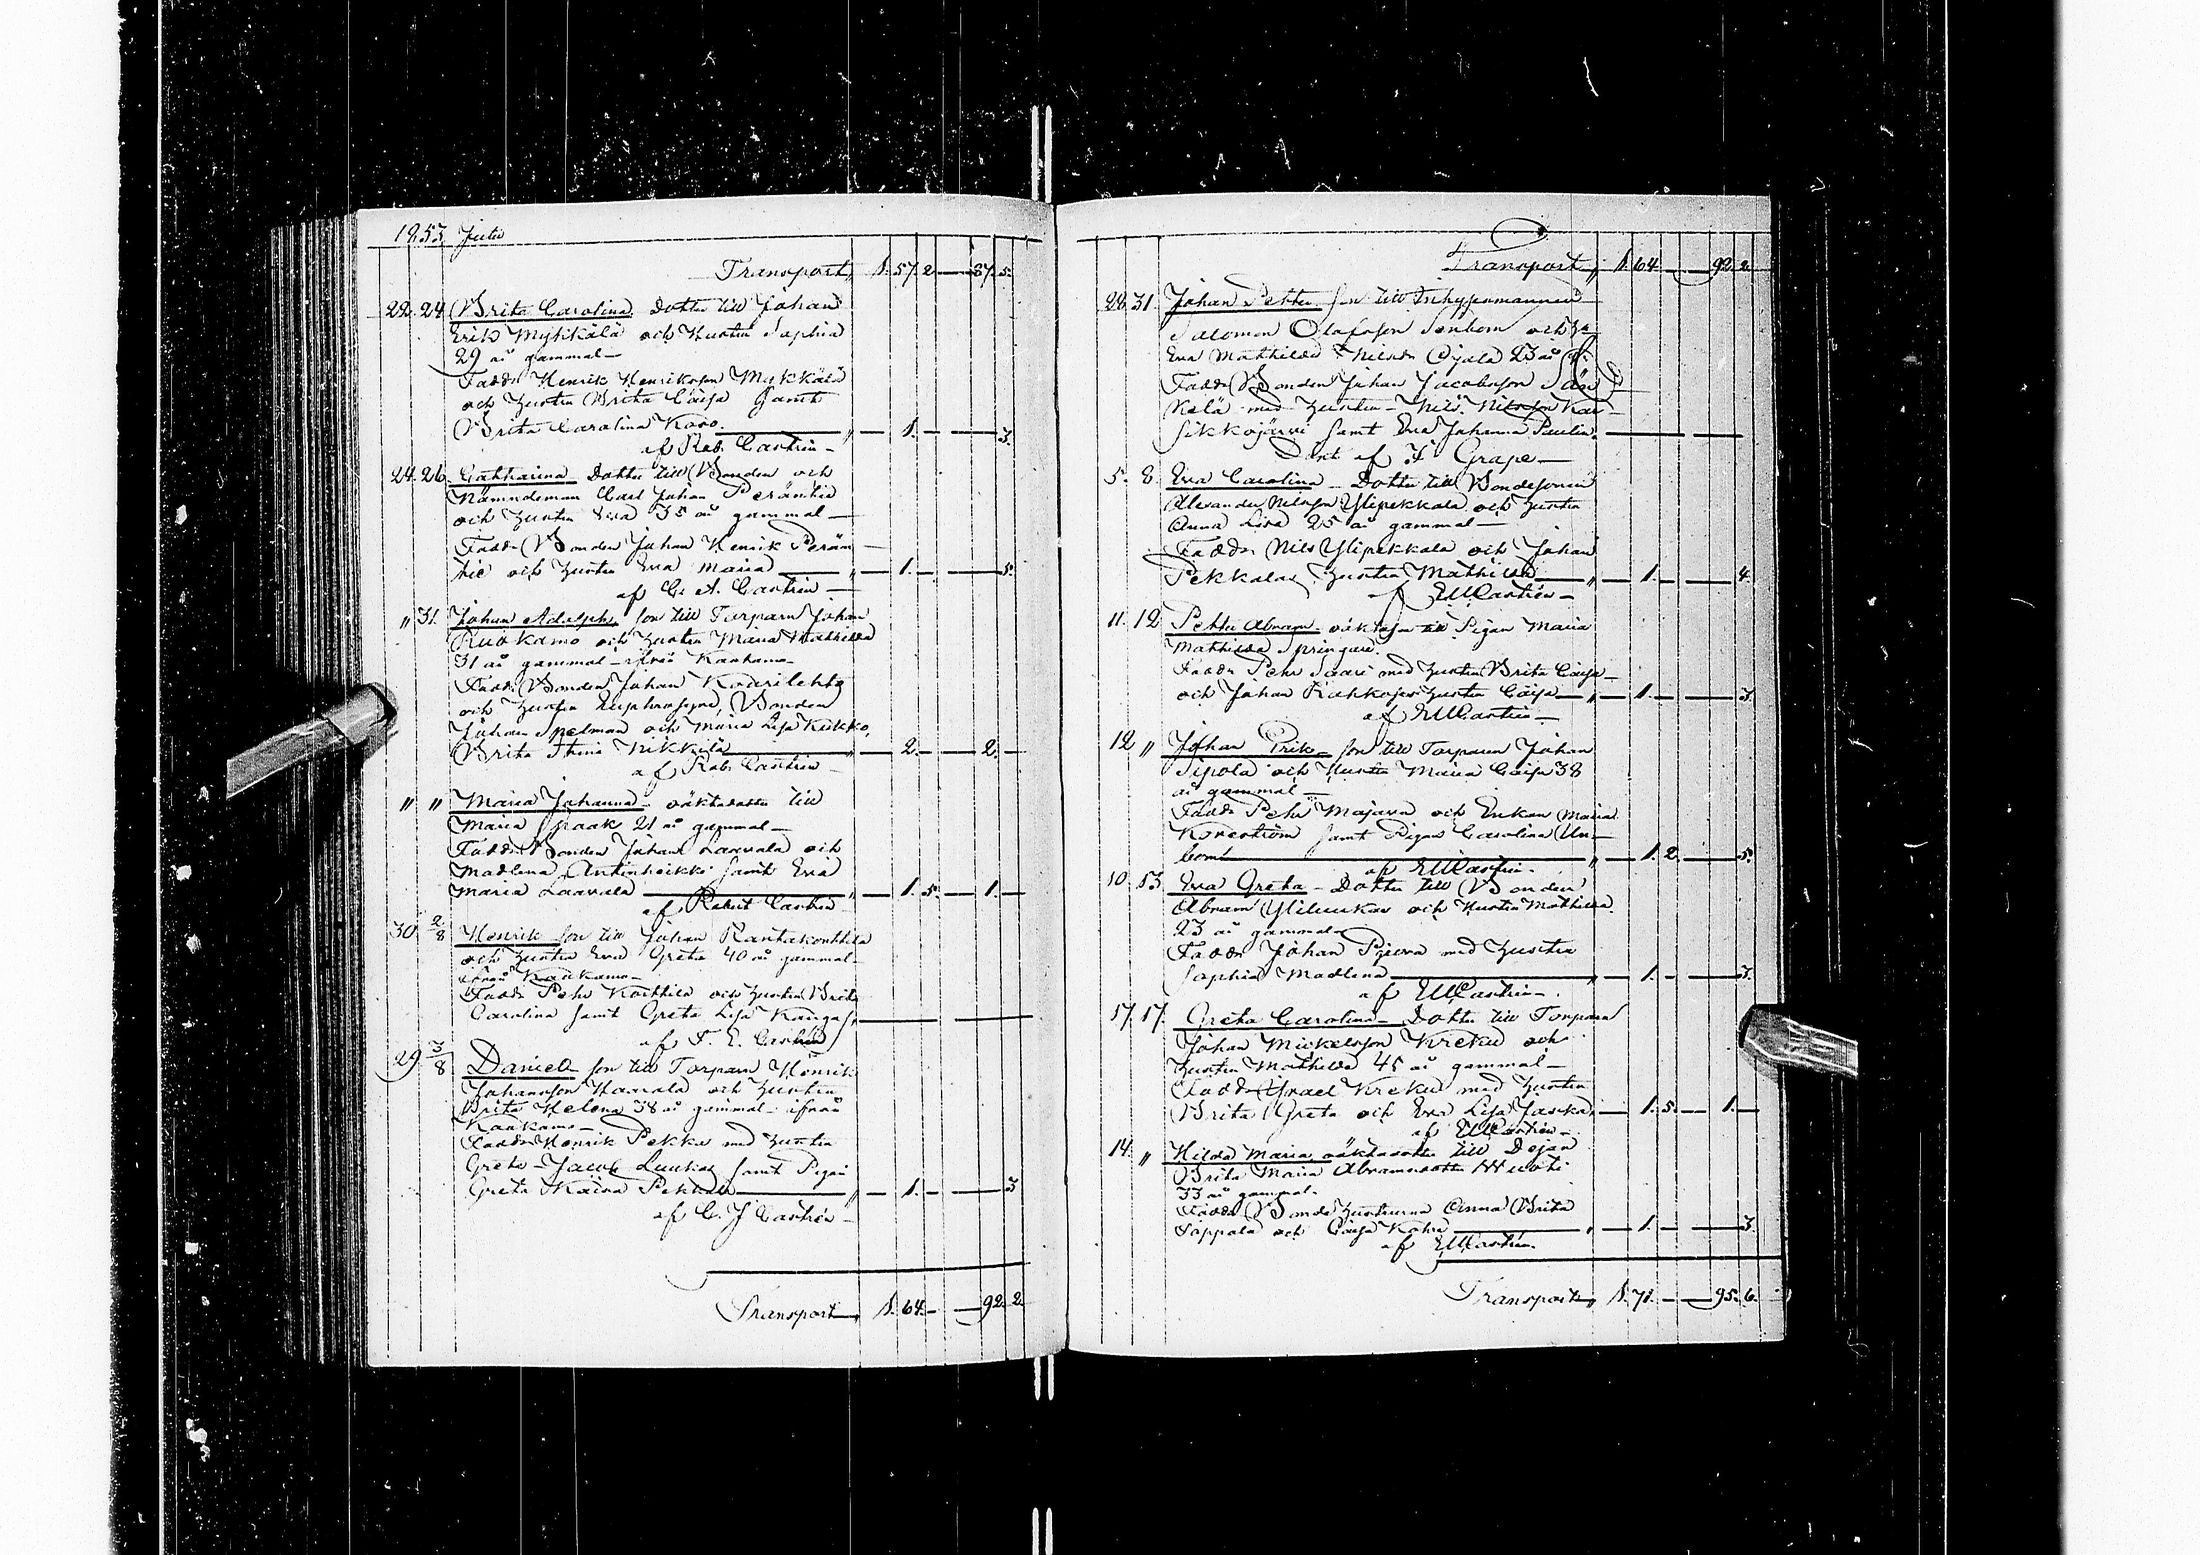 1853 Julii
Transport, 1. 57. 2 — 87. 5.
22. 24 Brita Carolina Dotter till Johan
Erik Mykkälä och Hustru Sophia
29 år gammal —
Faddr Henrik Henriksson Mykkälä
och hustru Brita Caisa samt
Brita Carolina Koro. — 1. — 3.
af Rob. Castrén —
24. 26 Catharina Dotter till Bonden och
Nämndeman Carl Johan Peräntie
och hustru Lisa 35 år gammal —
Faddr Bonden Johan Henrik Perän
tie och hustru Eva Maria — 1. — 5.
af C. A. Castrén —
" 31. Johan Adolph, son till Torparn Johan
Ruokamo och hustru Maria Mathilda
31 år gammal — ifrån Kaakamo —
Faddr Bonden Johan Kaarilehto
och hustru Euphrosyne, Bonden
Johan Spelman och Maria Lisa Kukko,
Brita Stina Nikkilä — 2. — 2. —
af Rob. Castrén —
" " Maria Johanna — oäkta dotter till
Maria Spaak 21 år gammal —
Faddr Bonden Johan Laavala och
Madlena Antinheikki samt Eva
Maria Laavala — 1. 5. — 1. —
af Robert Castrén
30 2/8 Henrik son till Johan Rantakonttila
och hustru Eva Greta 40 år gammal —
ifrån Kaakamo —
Faddr Pehr Konttila och hustru Brita
Carolina samt Greta Lisa Kangas, —
af F. E. Castrén
29 3/8 Daniel son till Torparn Henrik
Johansson Haarala och hustru
Brita Helena 38 år gammal — ifrån
Kaakamo —
Faddr Henrik Pekka med hustru
Greta — Jacob Luukas samt Pigan
Greta Kaisa Pekkala — 1. — 3
af C. J. Castrén —
Transport, 1. 64. — 92. 2.
Transport, 1. 64. — 92. 2.
28. 31 Johan Petter son till Inhysesmannen
Salomon Olofsson Sonbom och h:u
Eva Mathilda Nilsdr Ojala 23 år
Faddr Bonden Johan Jacobsson
kälä med hustru — Nils Nilsson Kar —
sikkojärvi samt Eva Johanna Paulin. —
Döpt af I Grape —
5. 8. Eva Carolina — Dotter till Bondesonen
Alexander Nilsson Ylipekkala och hustru
Anna Lisa 25 år gammal —
Faddr Nils Ylipekkala och Johan
Pekkalas hustru Mathilda — 1. — 4.
af EMCastrén —
11. 12 Petter Abram — oäkta son till Pigan Maria
Mathilda Springare.
Faddr Pehr Saari med hustru Brita Caisa —
och Johan Rahkojas hustru Caisa — 1. — 3.
af EMCastrén —
12 " Johan Erik — son till Torparen Johan
Sipola och Hustru Maria Caisa 38
år gammal —
Faddr Pehr Majava och Enkan Maria
Korström samt Pigan Carolina Un —
bom — 1. 2. — 5.
af EMCastrén.
10. 13. Eva Greta — Dotter till Bonden
Abram Yliluukas och Hustru Mathilda.
23 år gammal —
Faddr Johan Pyörre med hustru
Sophia Madlena — 1. — 3.
af EMCastrén —
17. 17. Greta Carolina — Dotter till Torparn
Johan Mickelsson Kreku och
hustru Mathilda 45 år gammal —
Faddr Israel Kreku med hustru
Brita Greta och Eva Lisa Jaska — 1. 5. — 1. —
af EMCastrén —
14. " Hilda Maria oäkta dotter till Dejan
Brita Maria Abramsdotter Huhti
33 år gammal —
Faddr Bonde hustrurna Anna Brita
Seppälä och Caisa Kahri — 1. — 3.
af EMCastrén.
Transport, 1. 71. — 95. 6.